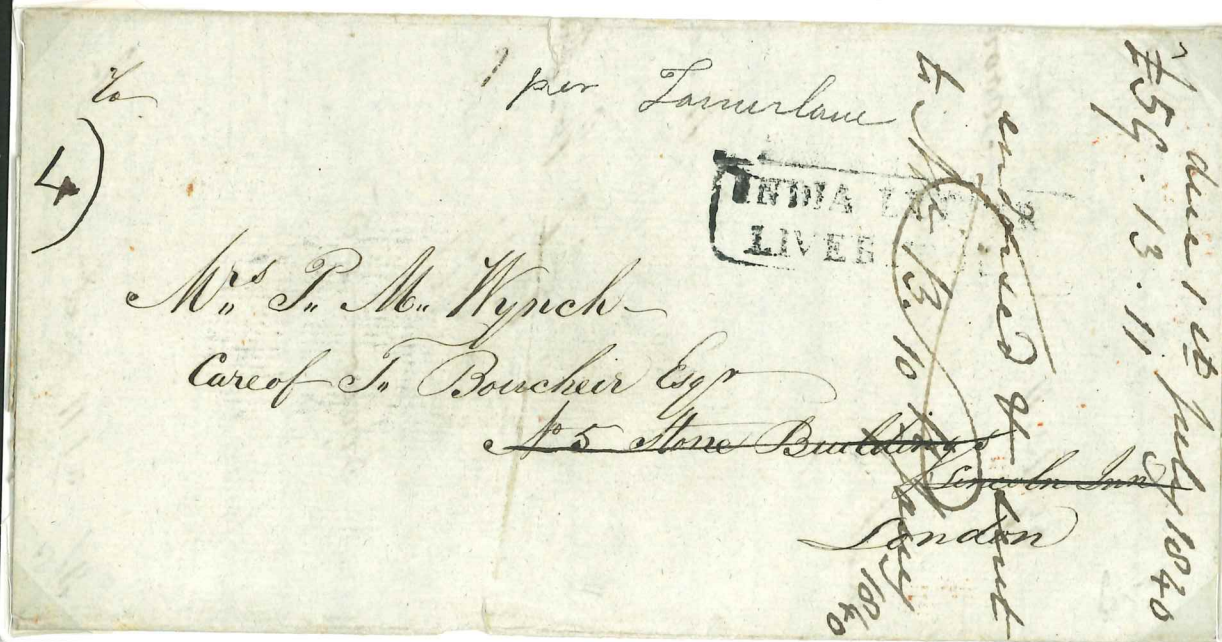 To
per Tamerlane
4
INDIA LETTER
LIVER
Mrs. P. M. Wynch
Care of T. Boucheir Esqr
No 5 Stone Buildings
Lincoln Inn
London
due 1st July 1840
£59.13.11
endorsed &
1840